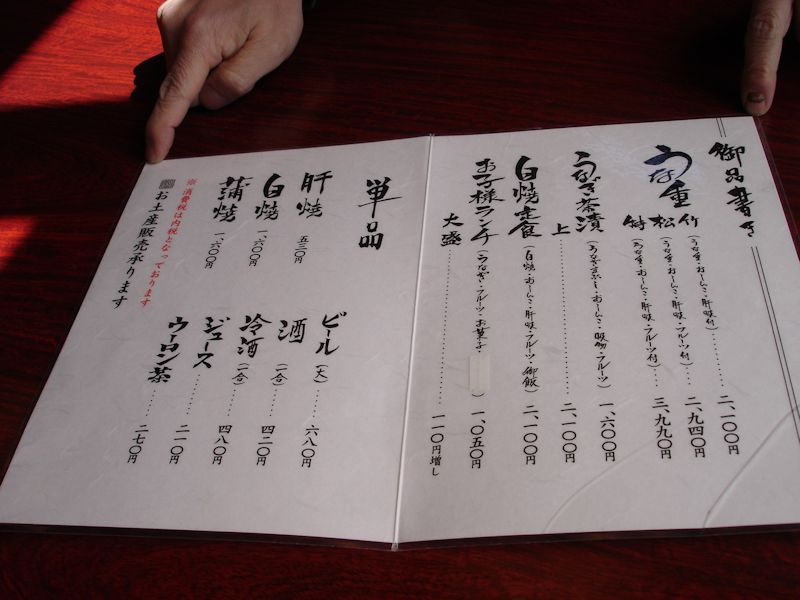 御品書き
うな重
竹（うな重・おしんこ・肝吸付）……二、一〇〇円
松（うな重・おしんこ・肝吸・フルーツ付）…二、九四〇円
特（うな重・おしんこ・肝吸・フルーツ付）…三、九九〇円
うなぎ茶漬（うなぎまぶし・おしんこ・吸物・フルーツ）一、六〇〇円
上……………二、一〇〇円
白焼定食（白焼・おしんこ・肝吸・フルーツ・御飯）二、一〇〇円
お子様ランチ（うなぎ・フルーツ・お菓子・）一、〇五〇円
大盛……………一一〇円増し
単品
肝焼 五三〇円
白焼 一、六〇〇円
蒲焼 一、六〇〇円
ビール（大）……六八〇円
酒（一合）……四二〇円
冷酒（一合）……四八〇円
ジュース……二一〇円
ウーロン茶……二七〇円
※消費税は内税となっております
お土産販売承ります